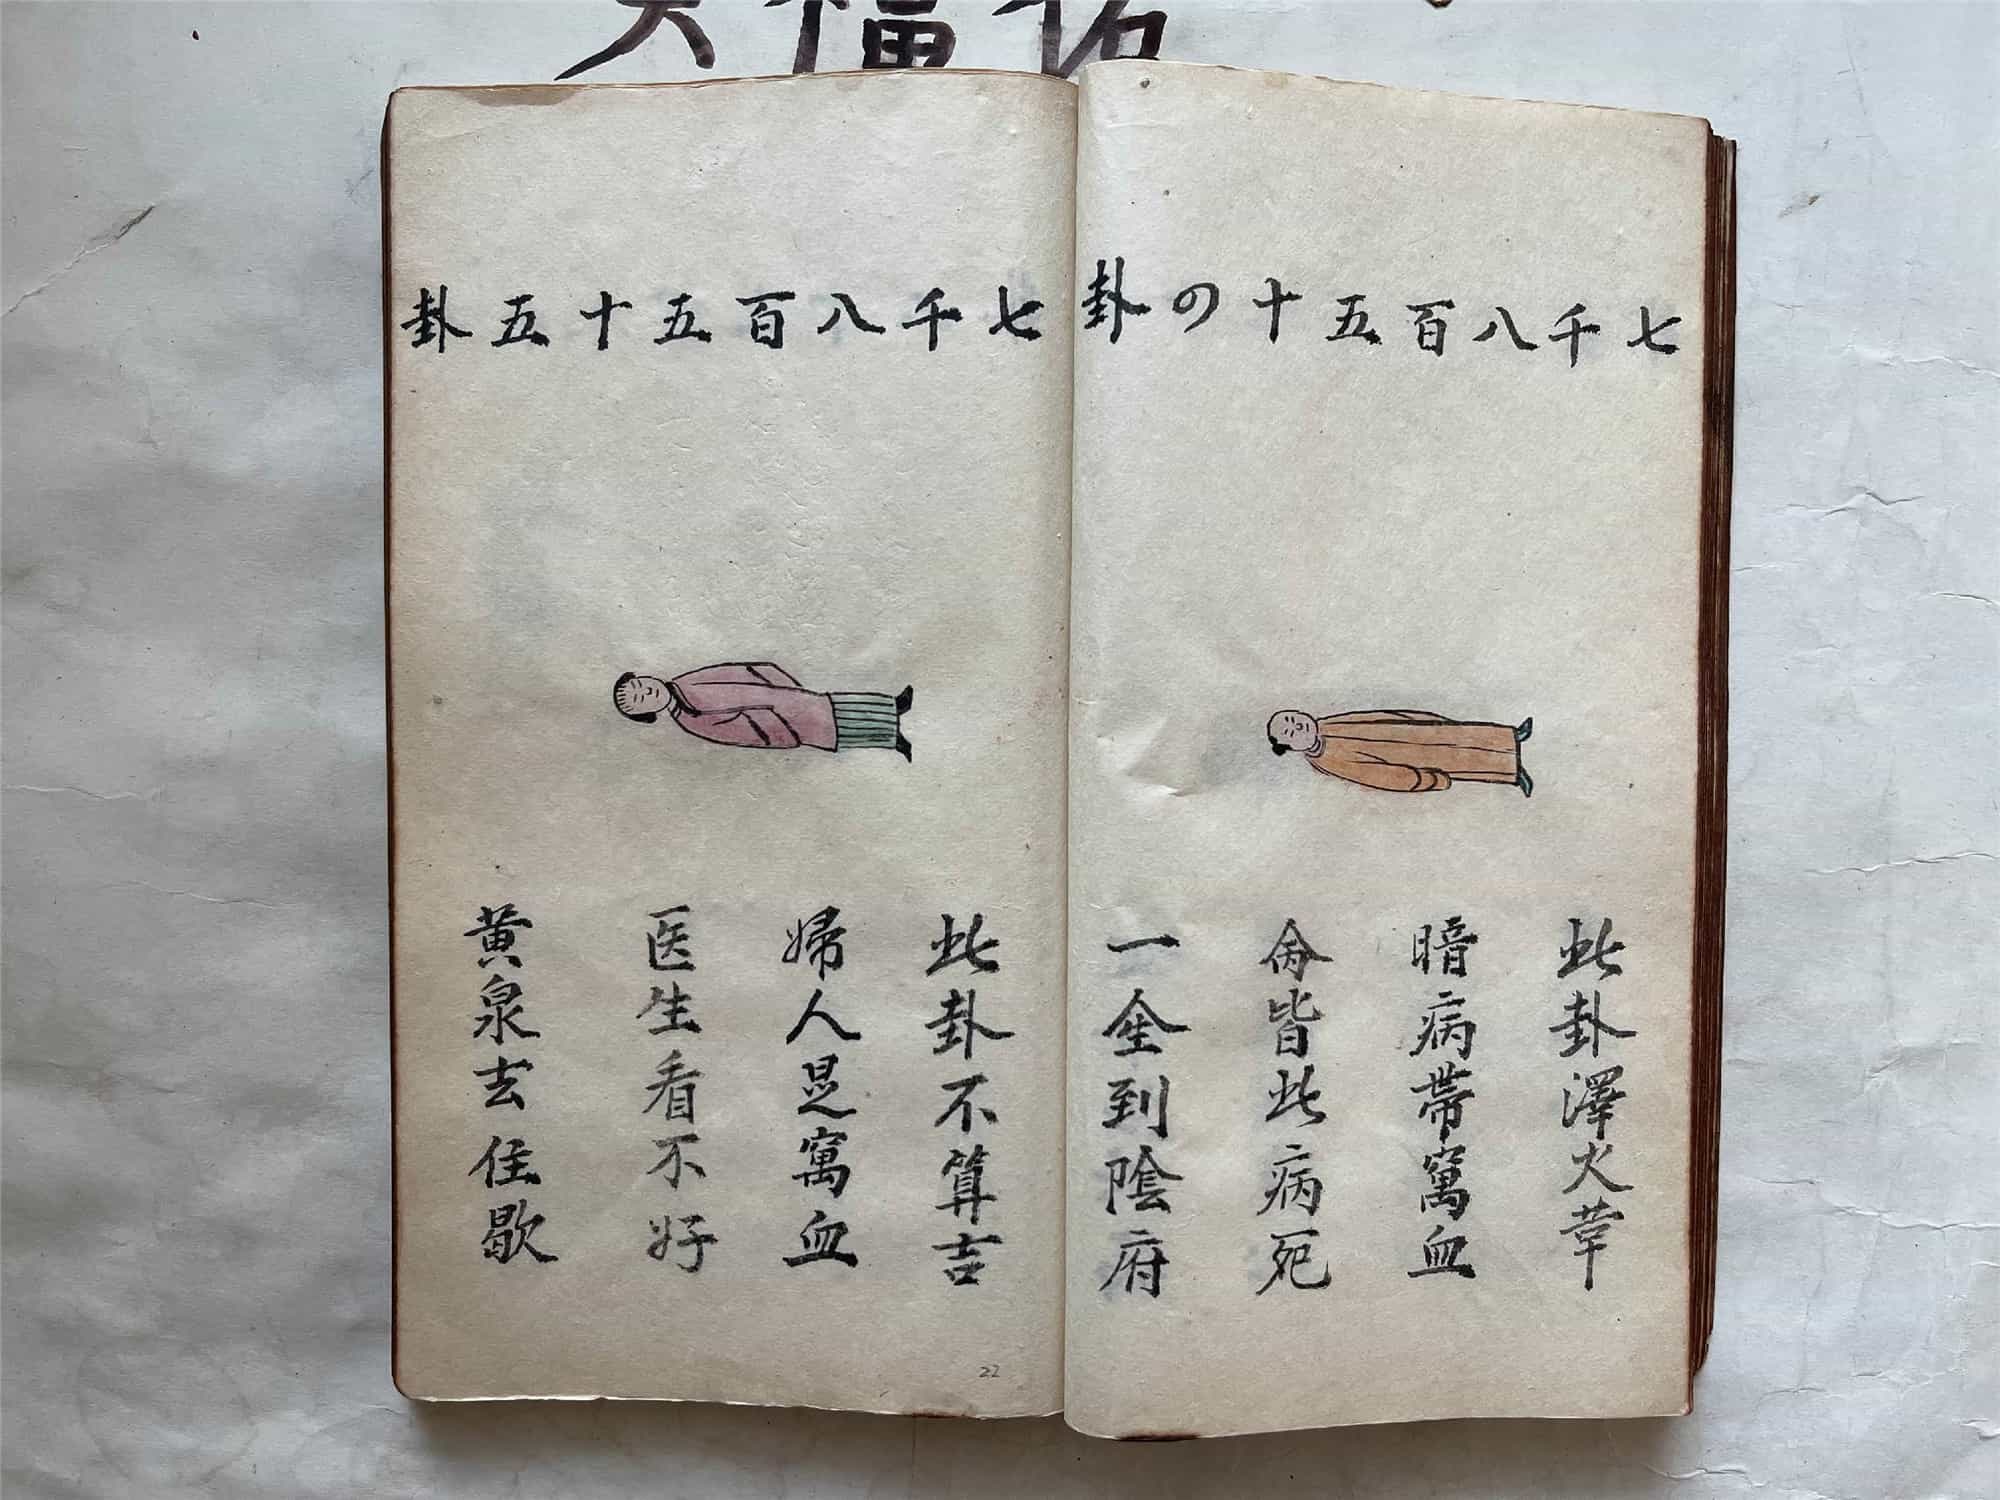 七千八百五十四卦
此卦澤火革
暗病帶窩血
命皆此病死
一全到陰府
七千八百五十五卦
此卦不算吉
婦人是窩血
医生看不好
黄泉去住歇
22
福佑